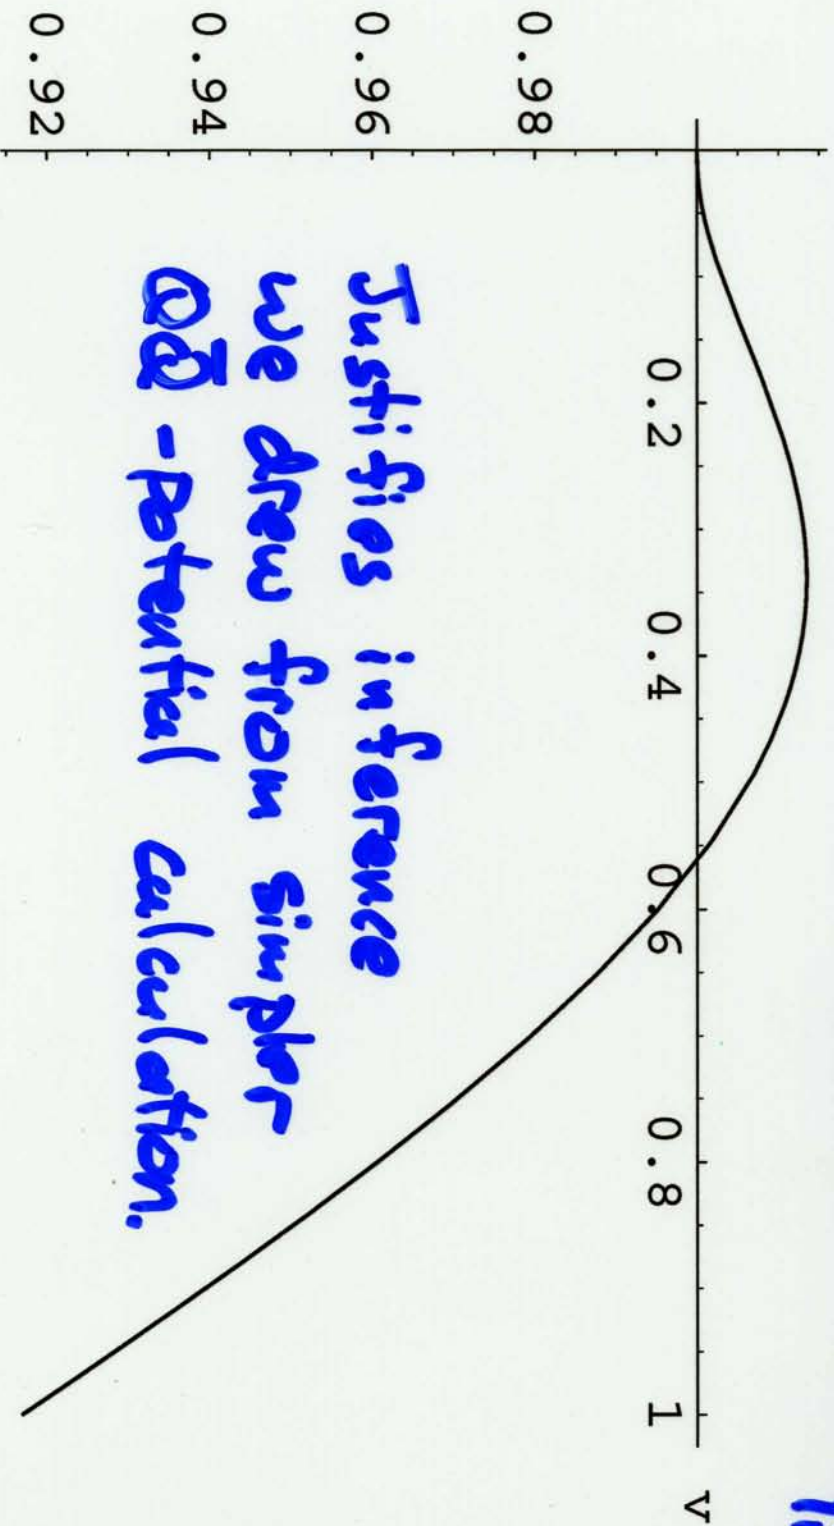 0.98
0.96
0.94
0.92
0.2
0.4
0.6
0.8
1
v
Justifies inference
we drew from simpler
QQ̄ -potential calculation.